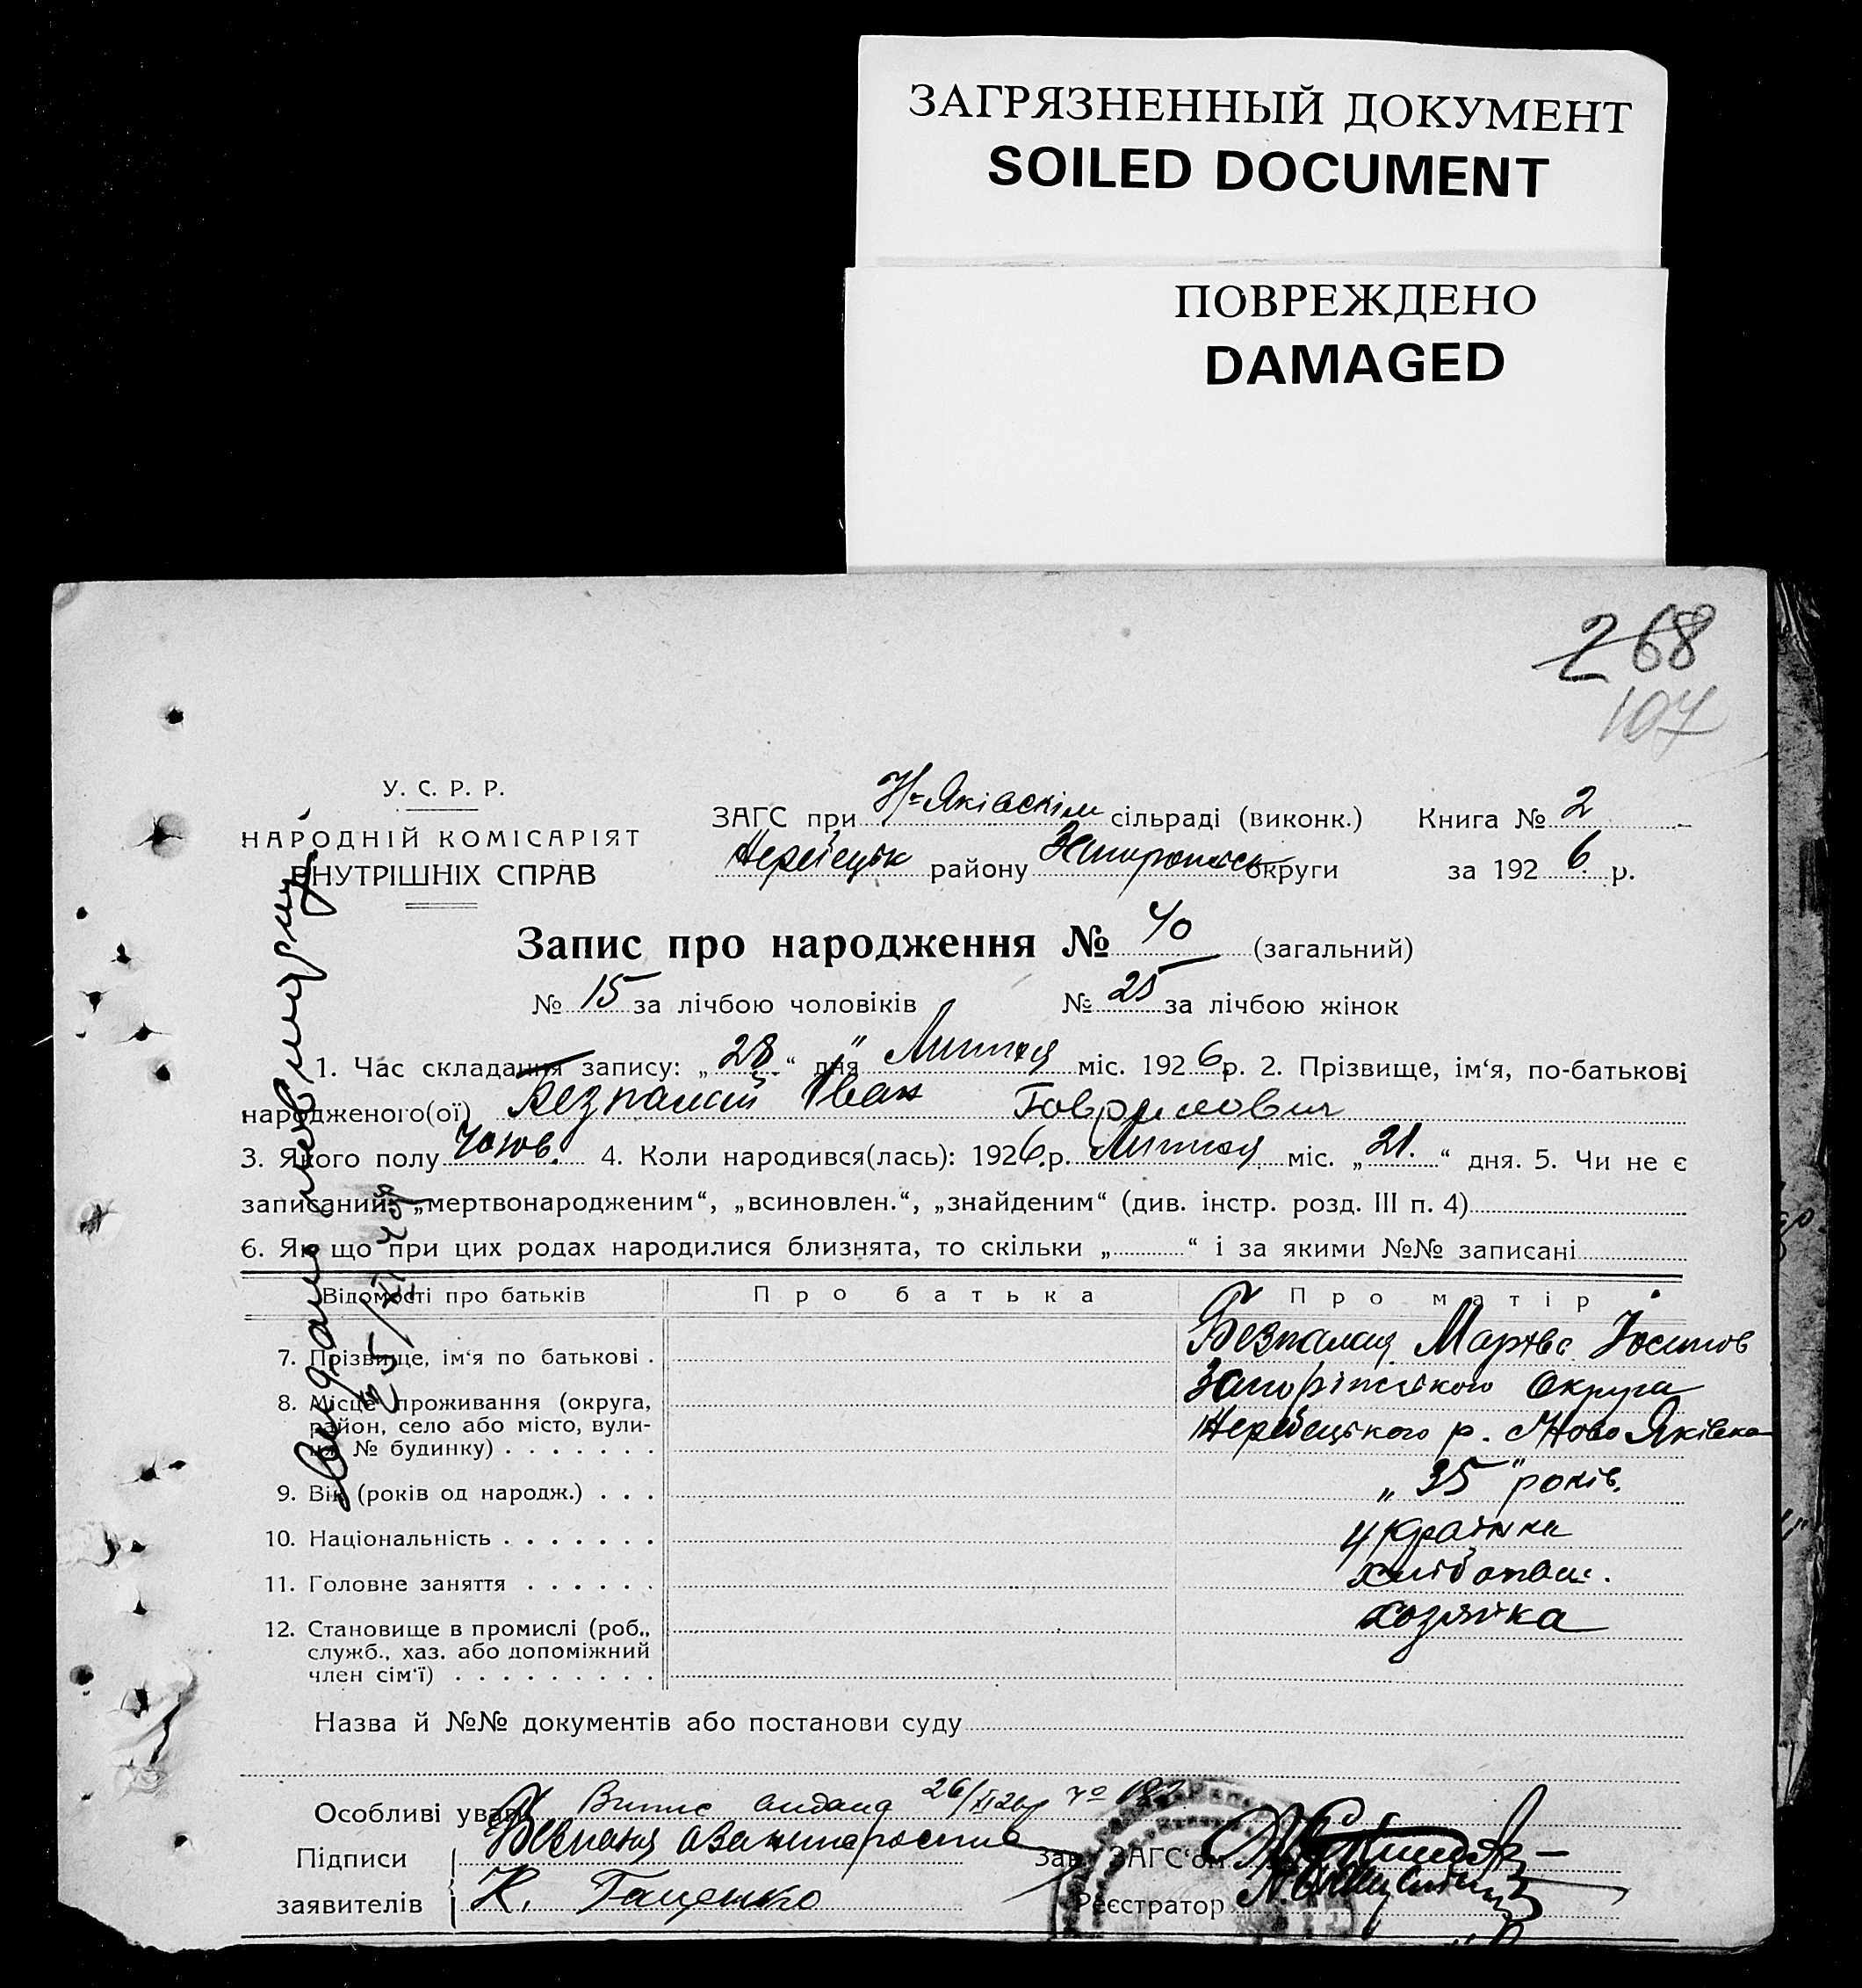 ЗАГРЯЗНЕННЫЙ ДОКУМЕНТ
SOILED DOCUMENT
ПОВРЕЖДЕНО
DAMAGED
268
107
У. С. Р. Р.
НАРОДНІЙ КОМІСАРІЯТ
ВНУТРІШНІХ СПРАВ
ЗАГС при Н-Яківскім сільраді (виконк.) Книга № 2
району округи за 1926 р.
Запис про народження № 40 (загальний)
№ 15 за лічбою чоловіків № 25 за лічбою жінок
1. Час складання запису: „28“ дня Липня міс. 1926 р. 2. Прізвище, ім‘я, по-батькові
народженого(ої) Безпалий Іван Гаврилович
3. Якого полу Чолов. 4. Коли народився(лась): 1926.р. Липня міс. „21.“ дня. 5. Чи не є
записаний: „мертвонародженим“, „всиновлен.“, „знайденим“ (див. інстр. розд. III п. 4)
6. Як що при цих родах народилися близнята, то скільки „ “ і за якими №№ записані
Відомості про батьків Про батька Про матір
7. Прізвище, ім‘я по батькові . Безпалая Марфа Йосипов
8. Місце проживання (округа, Запоріжського Округа
район, село або місто, вули- р. Ново Яківка
ця № будинку) . . . . . . .
9. Вік (років од народж.) . . . „35“ років.
10. Національність . . . . . . . Українка
11. Головне заняття . . . . . . хлібопаш.
12. Становище в промислі (роб., хозяйка
служб., хаз. або допоміжний
член сім‘ї) . . . . . . . . .
Назва й №№ документів або постанови суду
Особливі уваги Випис видана 26/XI 26р
Підписи Безпалая
Зав. ЗАГС‘ом
заявителів К. Гащенко
Реєстратор